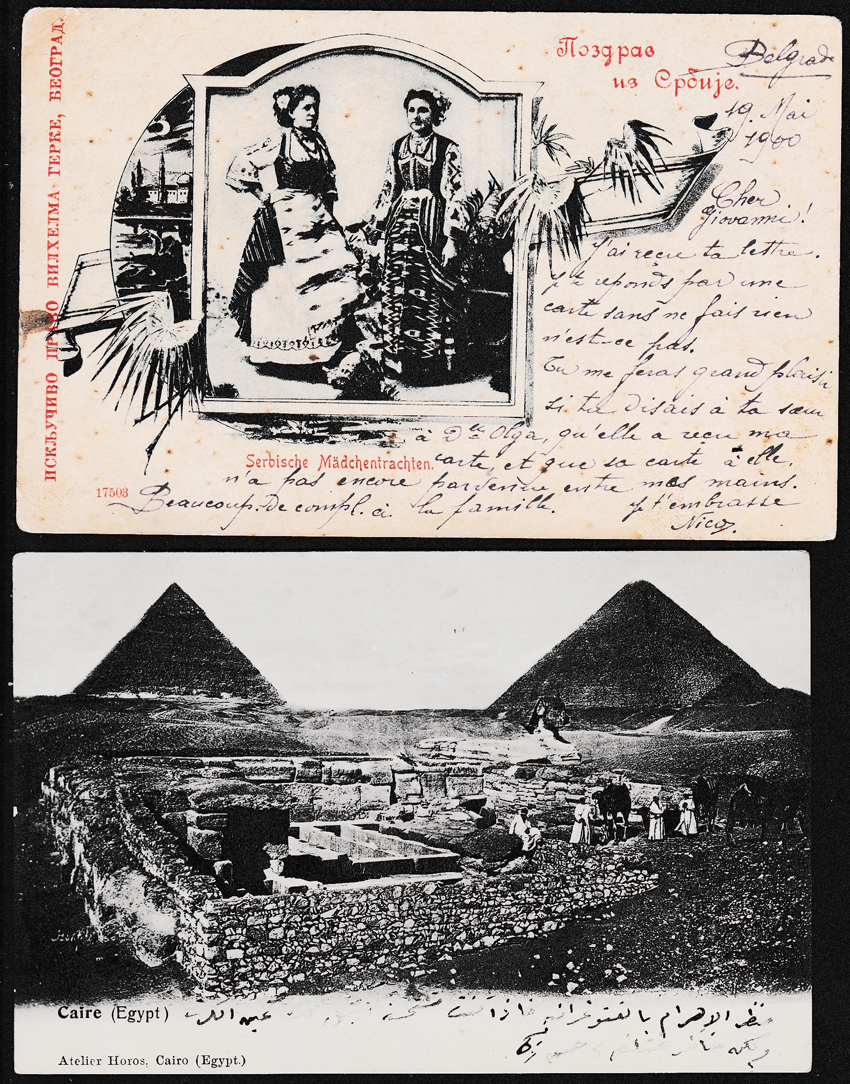 ИСКЉУЧИВО ПРАВО ВИЛХЕЛМА ГЕРКЕ, БЕОГРАД.
Поздрав
из Србије.
Belgrade
19 Mai
1900
Cher
Giovanni!
J'ai reçu ta lettre.
je te reponds par une
carte sans ne fais rien
n'est-ce pas.
Tu me feras grand plaisir
si tu disais à ta sœur
à Dlle Olga, qu'elle a reçu ma
carte, et que sa carte à elle.
n'a pas encore parvenue entre mes mains.
Beaucoup de compl. à la famille. Je t'embrasse
Nico
Serbische Mädchentrachten.
17503
Caire (Egypt)
منظر الاهرام بالفتوغرافي
Atelier Horos, Cairo (Egypt.)